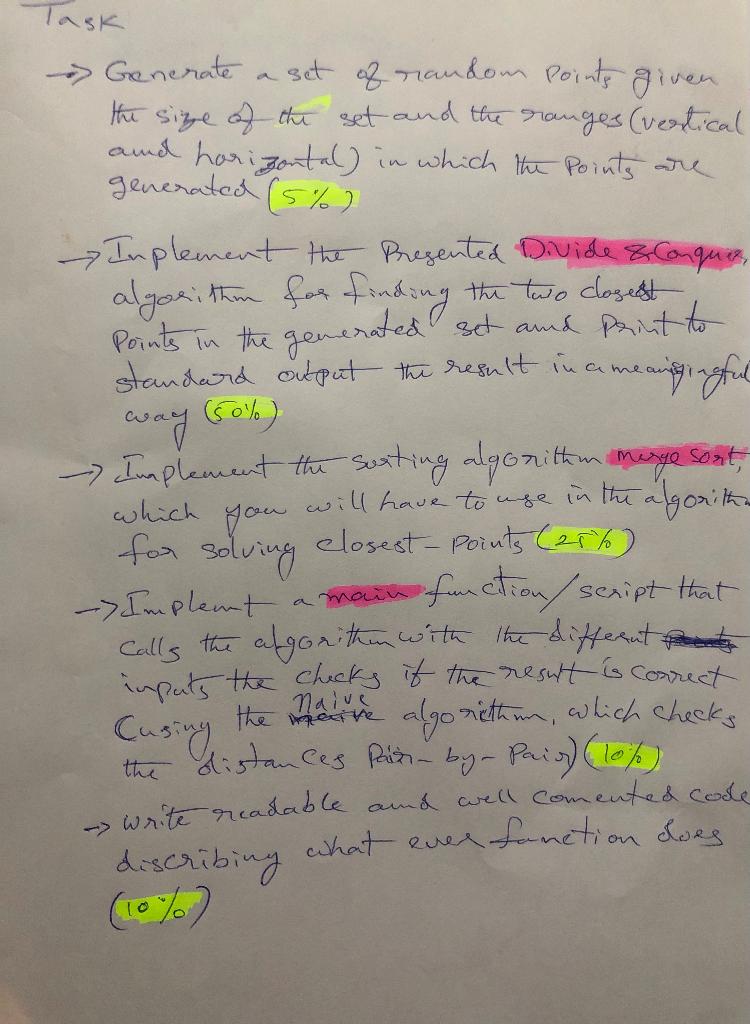 Task
→ Generate a set of random points given
the size of the set and the ranges (vertical
amd horizontal) in which the Points are
generated (5%)
→ Inplement the Presented Divide & Conquer,
algorithm for finding the two closest
Points in the generated set amd print to
standard output the result in a meaningful
way (50%)
→ Implement the sorting algorithm merge sort,
which you will have to use in the algorithm
for solving closest-points (25%)
→ Implemt a main function/script that
calls the algorithm with the different
inputs the checks if the result is correct
(using the naive algorithm, which checks
the distances Pair-by-Pair) (10%)
→ write readable amd well comented code
discribing what ever function does
(10%)